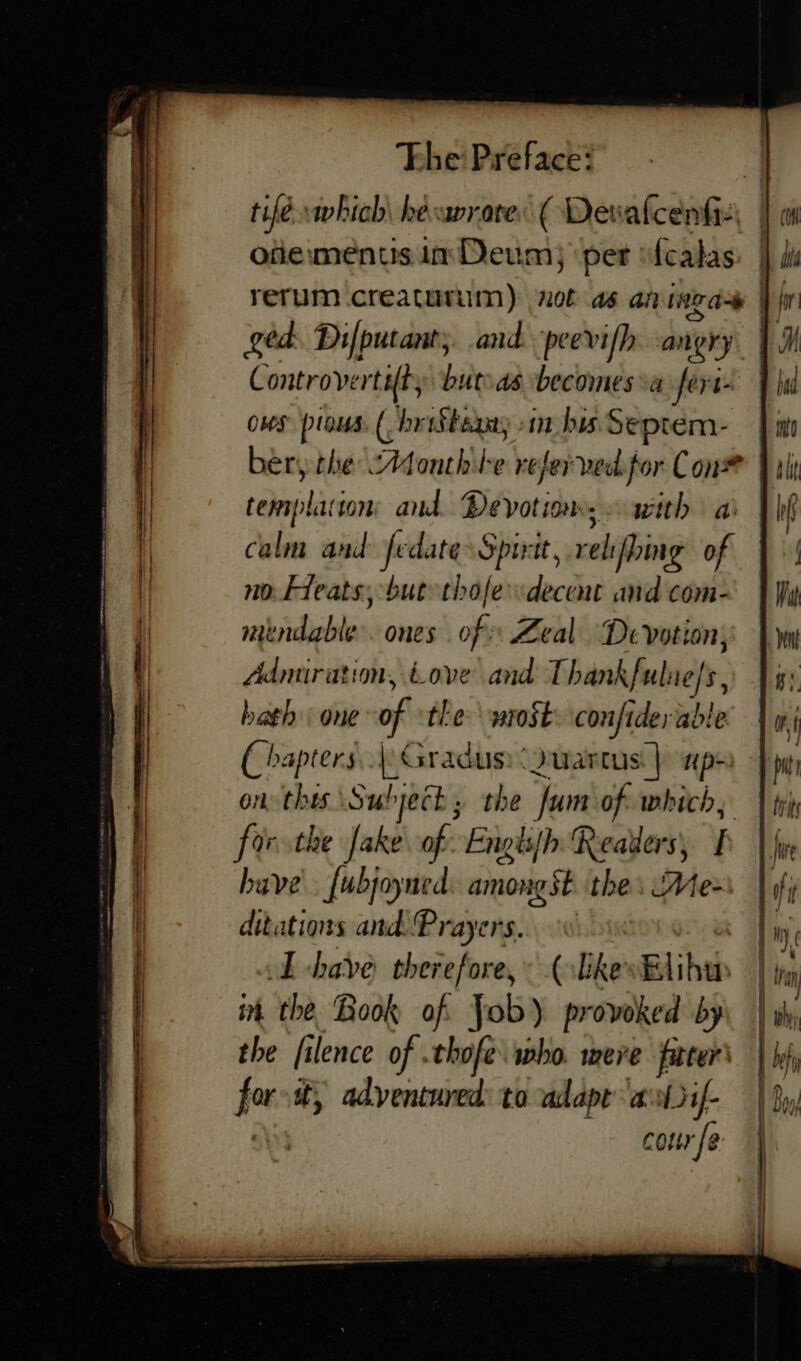 The Preface:
tiſe which he wrote ( De aſcenſi-
one mentis in Deum; per ſcalas
rerum creaturum) not as an inga-
ged Diſputant, and peeviſh angry
Controvertiſt, but as becomes a ſeri-
ous pious Chriſtian, in his Septem-
ber, the Month he reſerved for Con-
templation and Devotion; with a
calm and ſedate Spirit, reliſhing of
no Heats, but thoſe decent and com-
mendable ones of Zeal Devotion,
Admiration, Love and Thankfulneſs,
hath one of the moſt conſiderable
Chapters [ Gradus Quartus ] up-
on this Subject; the ſum of which,
for the ſake of Engliſh Readers, I
have ſubjoyned amongſt the Me-
ditations and Prayers.
I have therefore, ( like Elihu
in the Book of Job) provoked by
the ſilence of thoſe who were fitter
for it, adventured to adapt a Diſ-
courſe